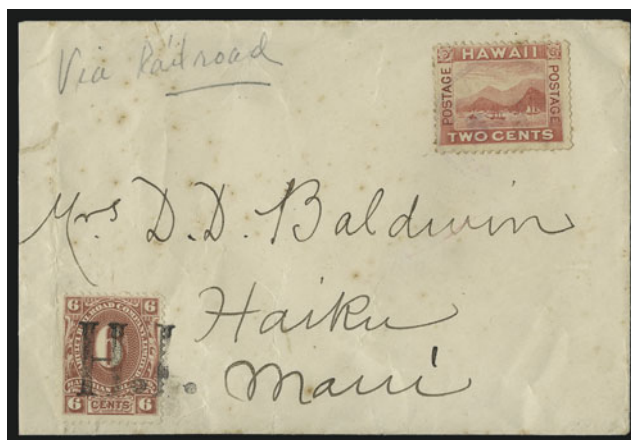 Via Railroad
HAWAII
POSTAGE POSTAGE
TWO CENTS
Mrs D.D. Baldwin
Haiku
Maui
6 6
RAILROAD COMPANY
6
6 CENTS 6